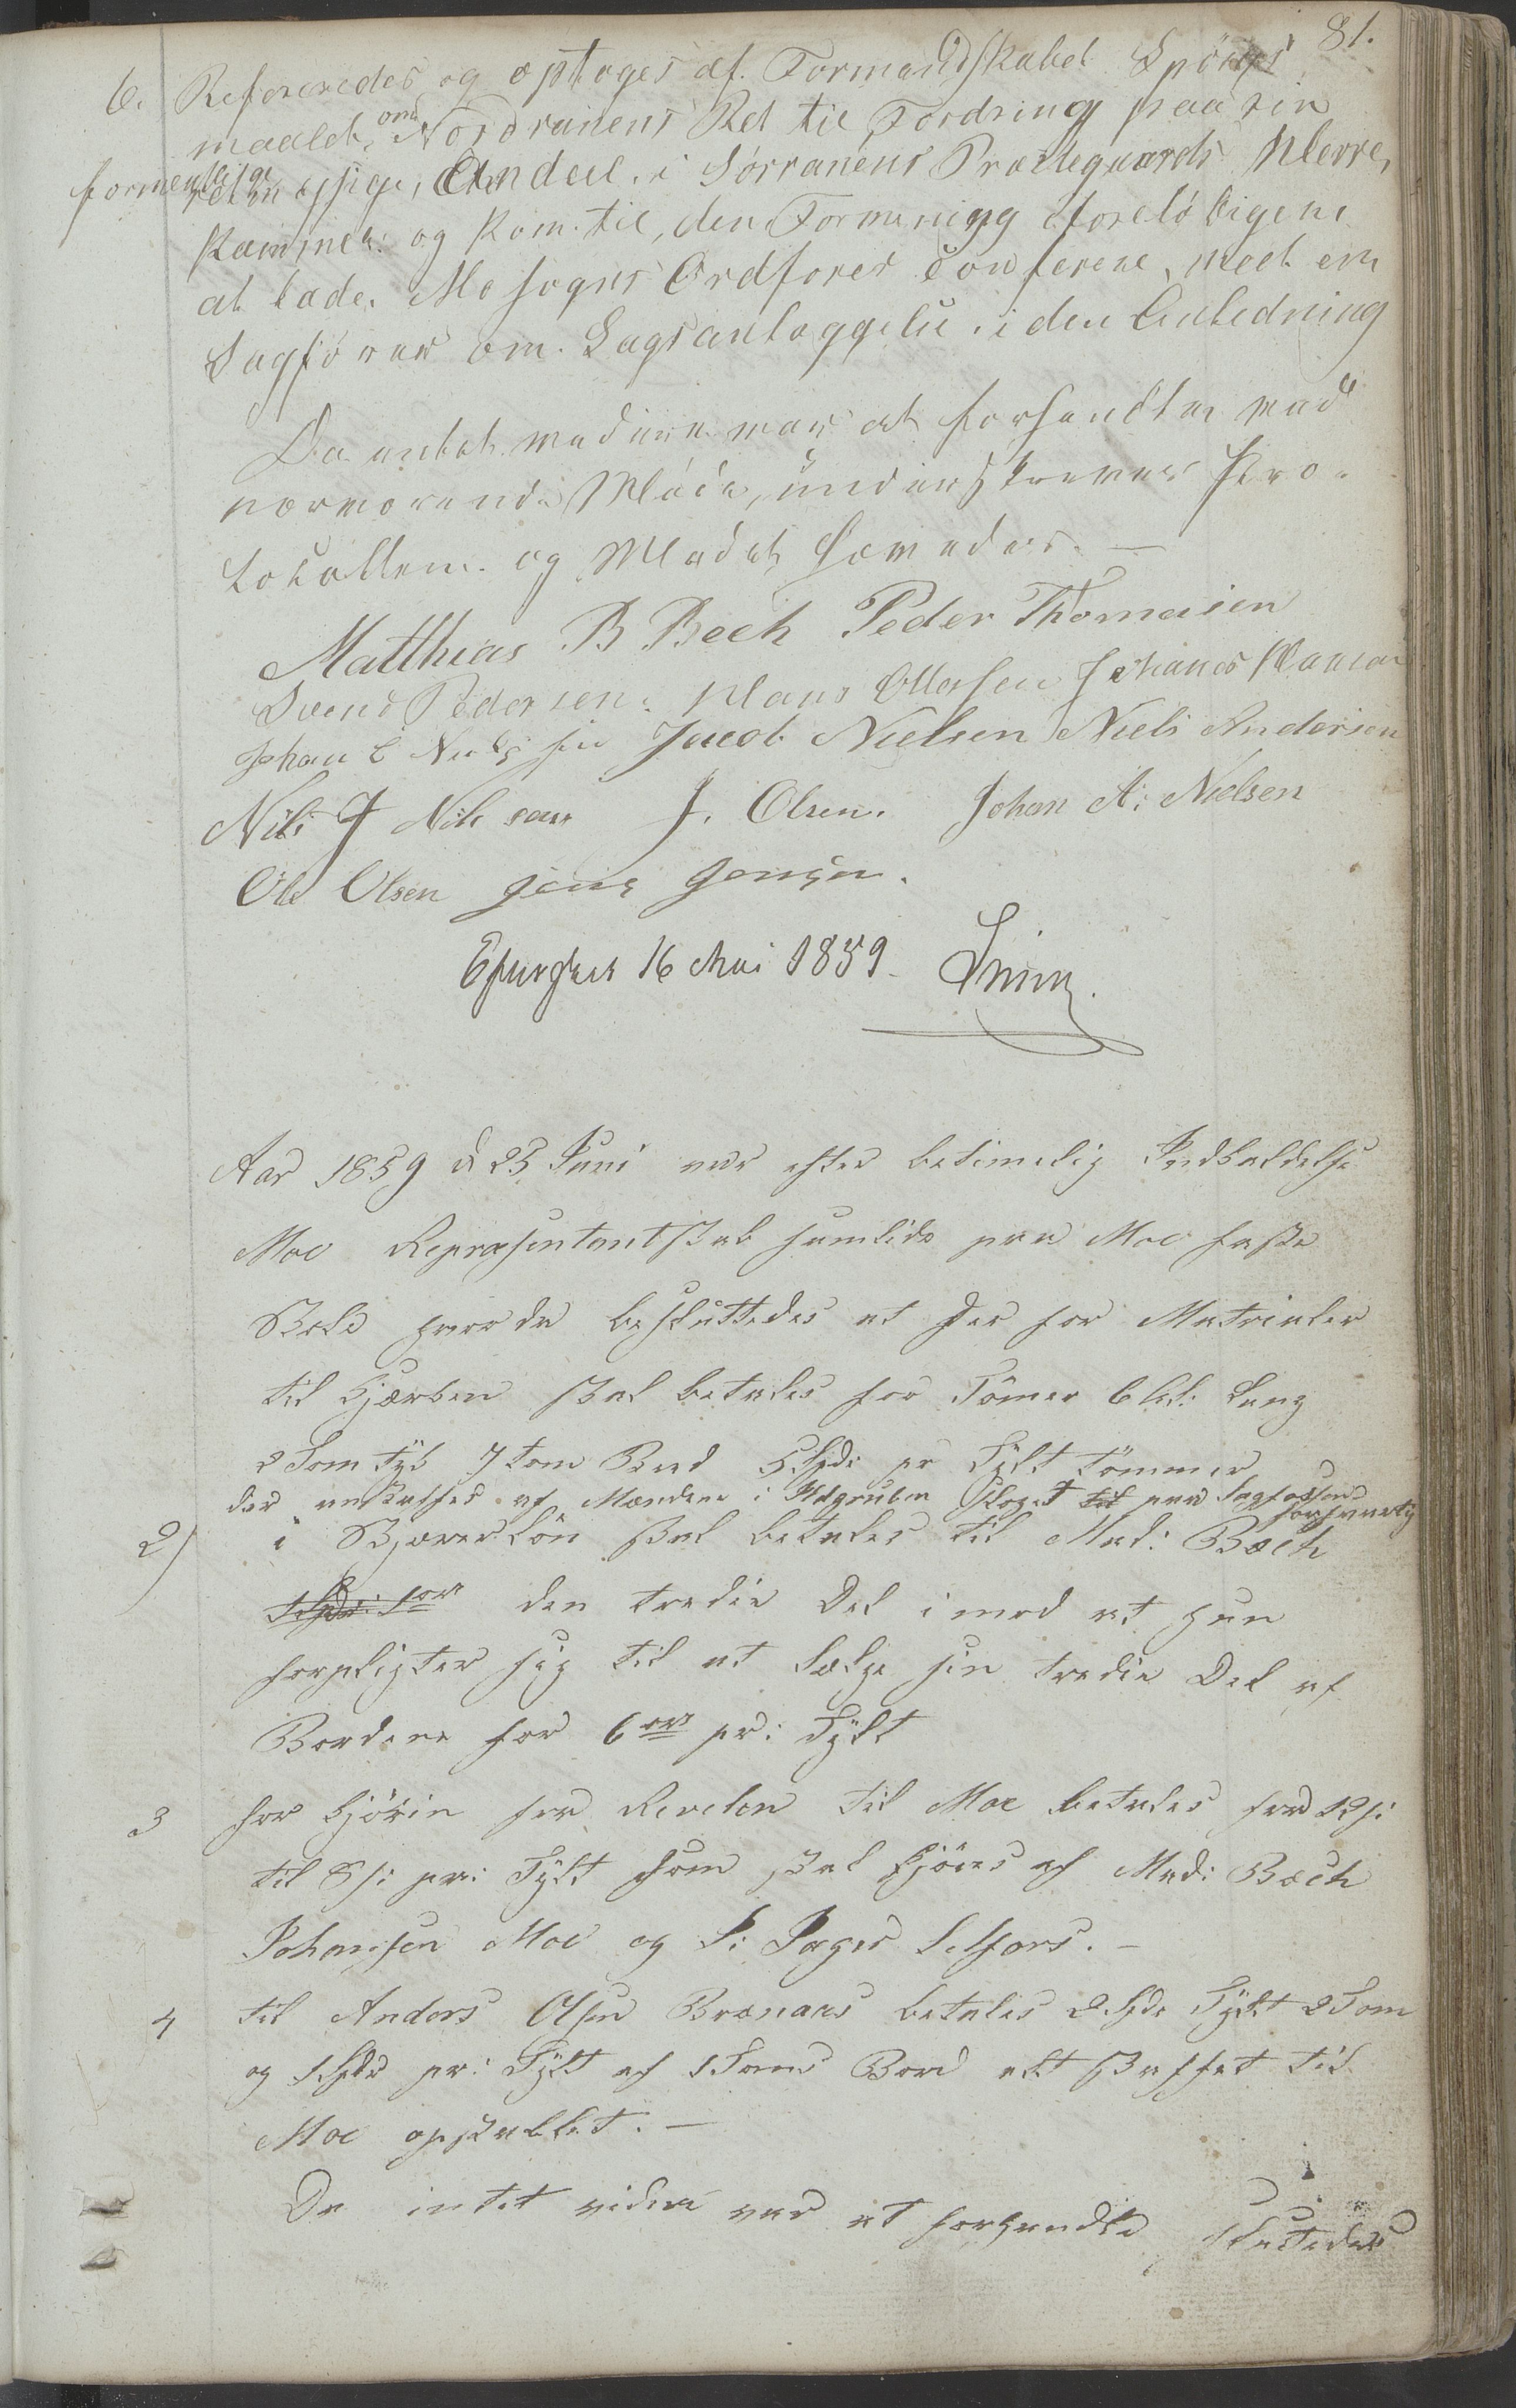 81.
6. Refereredes og optoges af Formandskabet Spörgs
maalet, om Nordranens Ret til Fordring paa sin
formentlige Andeel i Sörranens Præstegaards Herre,
kammer og kom til, den Formening foreløbigene
at lade Mo sogns Ordfører conferere med en
Sagfører om Sagsanlæggelse i den Anledning
Da intet videre var at forhandle ved
nærværende Møde, underskreves Pro-
tokollen og Mødet hævedes. —
Matthias B Bech Peder Thomesen
Svend Pedersen. Hans Ottersen Johanes Hansen
Johan C Nielsen Jacob Nielsen Niels Andersen
Nils J Nilssen J. Olsen. Johan A. Nielsen
Ole Olsen Jens Jensen.
Efterseet 16 Mai 1859.
Aar 1859 d 25 Juni var efter betimelig Indkaldelse
Moe Repræsentantskab samlede paa Moe faste
Skole hvor da besluttedes at der for Matrialer
til Kjærken skal betales for Tømer 6 Al: Lang
2 Tom Tyk 7 tom Bred 5 Spd: pr Tylt tömmer
der anskaffes af Mændene i Sloget til paa Sagfossen
forsvarlig
2) i Skjærerlön skal betales til Mad: Bech
den tredie Del imod at hun
forpligter sig til at sælge sin tredie Del af
Bordene for 6 ort pr: Tylt
3 for Kjörin fra Revelen til Moe betales fra 12 s:
til 8 s: pr: Tylt som skal kjöres af Mad: Bech
Johansen Moe og P: Jager Selfors. —
4 til Anders Olsen Brænaas betales 2 Spd Tylt 2 Tom
og 1 Spd pr: Tylt af 1 Toms Bord alt skaffet til
Moe opstablet. —
Da intet videre var at forhandle sluttedes